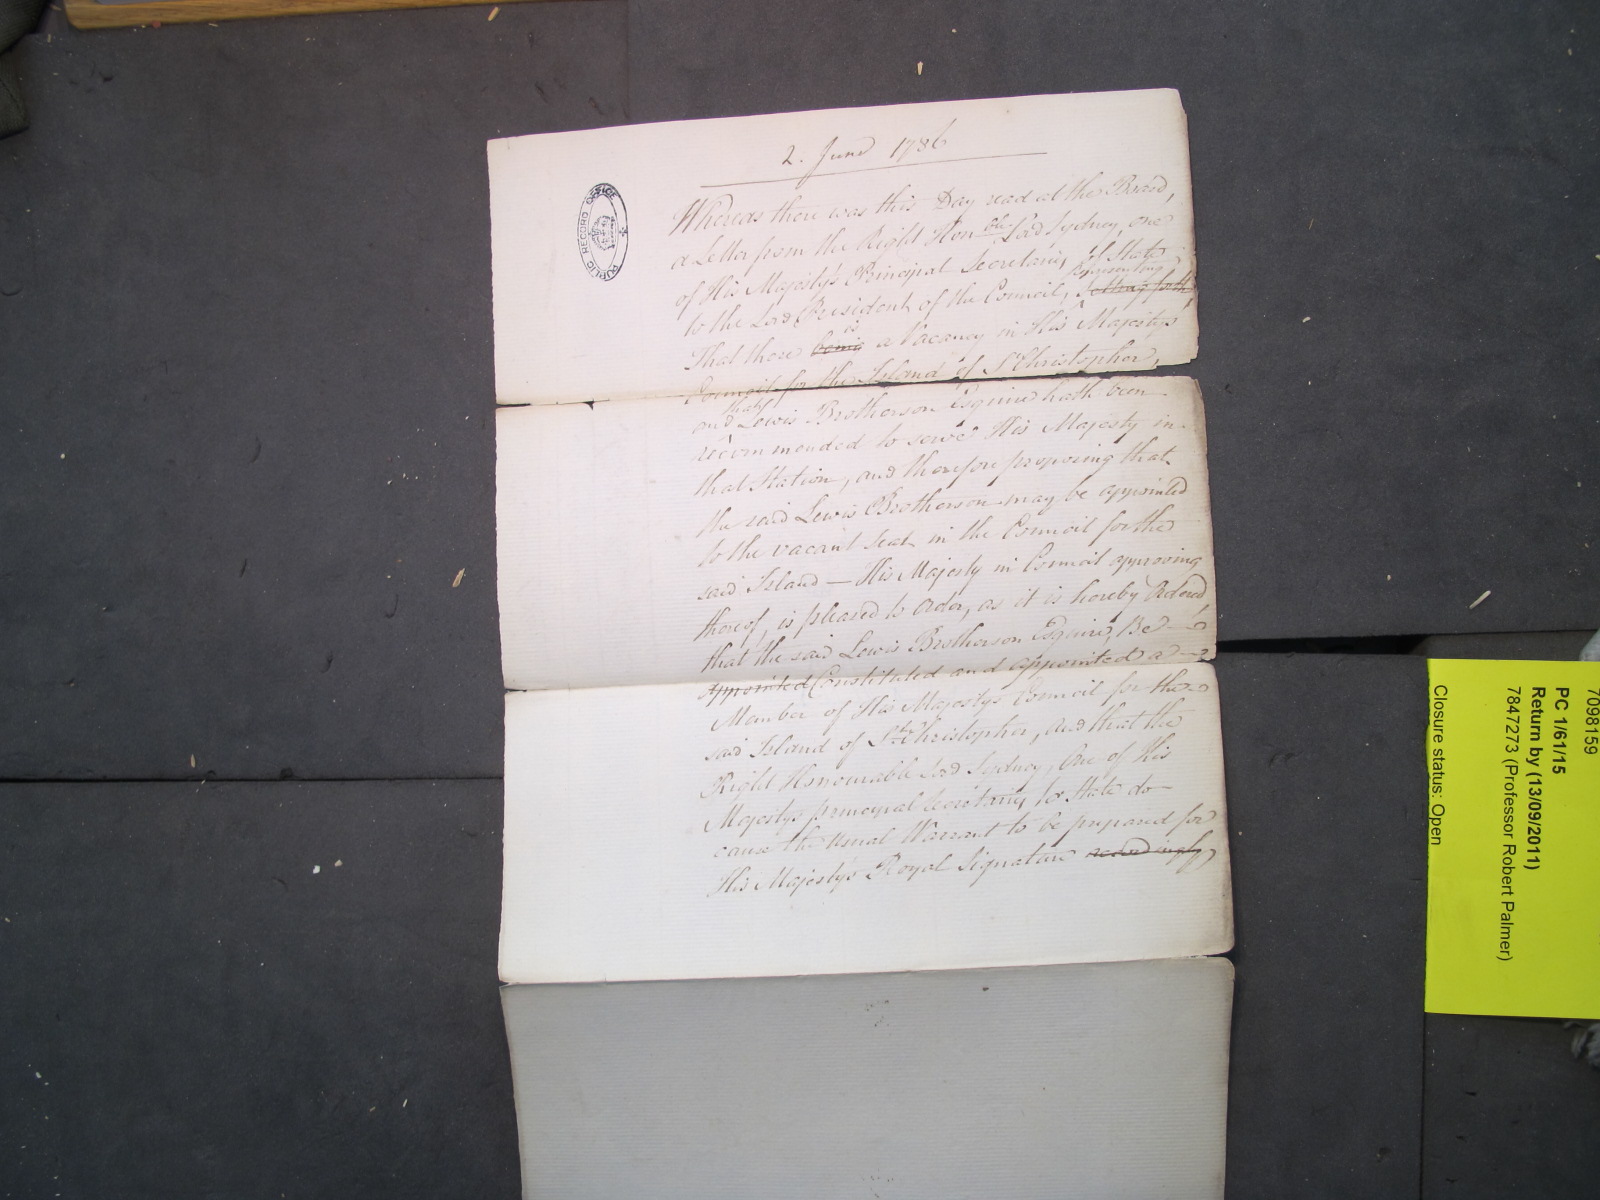 2. June 1786
PUBLIC RECORD OFFICE
Whereas there was this Day read at the Board,
a Letter from the Right Honble Lord Sydney, one
of His Majesty's Principal Secretaries of State
representing
to the Lord President of the Council, setting forth
is
That there being a Vacancy in His Majesty's
Council for the Island of St Christopher,
that
and Lewis Brotherson Esquire hath been
recommended to serve His Majesty in
that Station, and therefore proposing that
the said Lewis Brotherson may be appointed
to the vacant Seat in the Council for the
said Island — His Majesty in Council approving
thereof, is pleased to Order, as it is hereby Ordered
that the said Lewis Brotherson Esquire, Be
appointed Constituted and appointed a
Member of His Majesty's Council for the
said Island of St Christopher, and that the
Right Honourable Lord Sydney, One of His
Majestys principal Secretarys of State do
cause the usual Warrant to be prepared for
His Majesty's Royal Signature accordingly
7098159
PC 1/61/15
Return by (13/09/2011)
7847273 (Professor Robert Palmer)
Closure status: Open